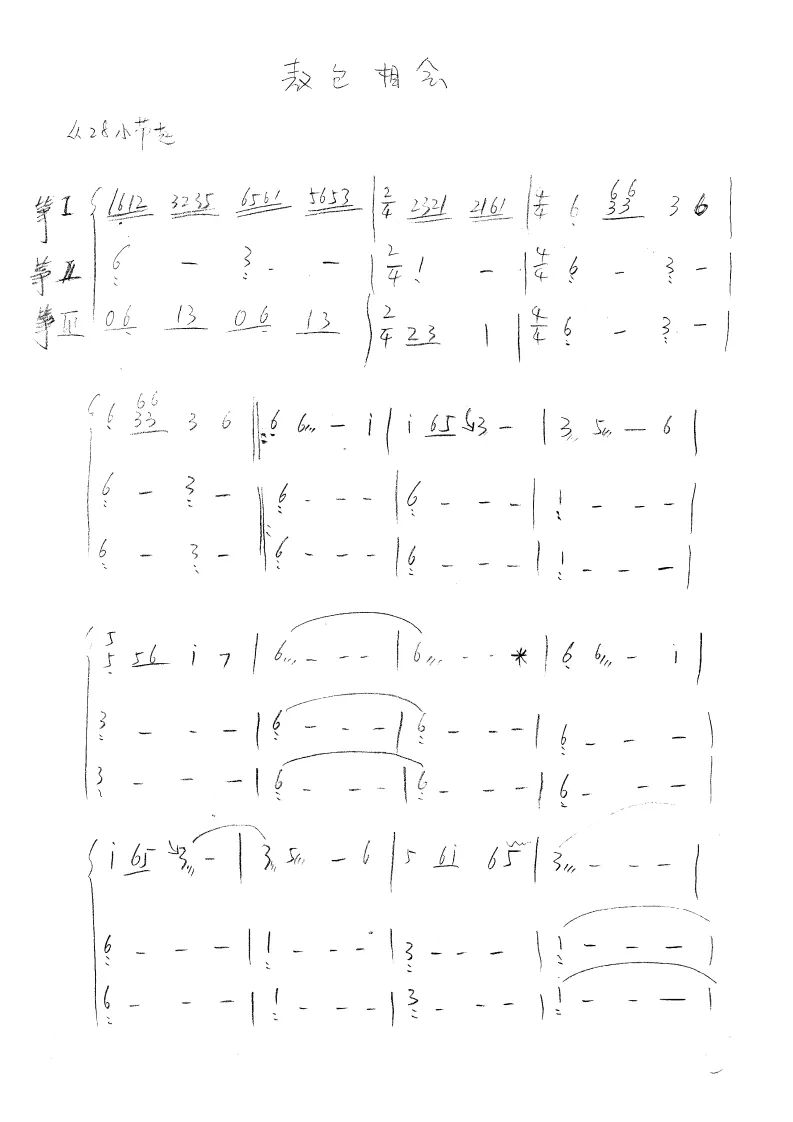 敖包相会
从28小节起
筝I 1612 3235 6561 5653 | 2/4 2321 2161 | 4/4 6 66/33 3 6 |
筝II 6 - 3 - | 2/4 1 - | 4/4 6 - 3 - |
筝III 06 13 06 13 | 2/4 23 1 | 4/4 6 - 3 - |
6 66/33 3 6 || 6 6 - i | i 65 3 - | 3 5 - 6 |
6 - 3 - || 6 - - - | 6 - - - | 1 - - - |
6 - 3 - || 6 - - - | 6 - - - | 1 - - - |
5/5 56 i 7 | 6 - - - | 6 - - * | 6 6 - i |
3 - - - | 6 - - - | 6 - - - | 6 - - - |
3 - - - | 6 - - - | 6 - - - | 6 - - - |
i 65 3 - | 3 5 - 6 | 5 6i 65 | 3 - - - |
6 - - - | 1 - - - | 3 - - - | 1 - - - |
6 - - - | 1 - - - | 3 - - - | 1 - - - |